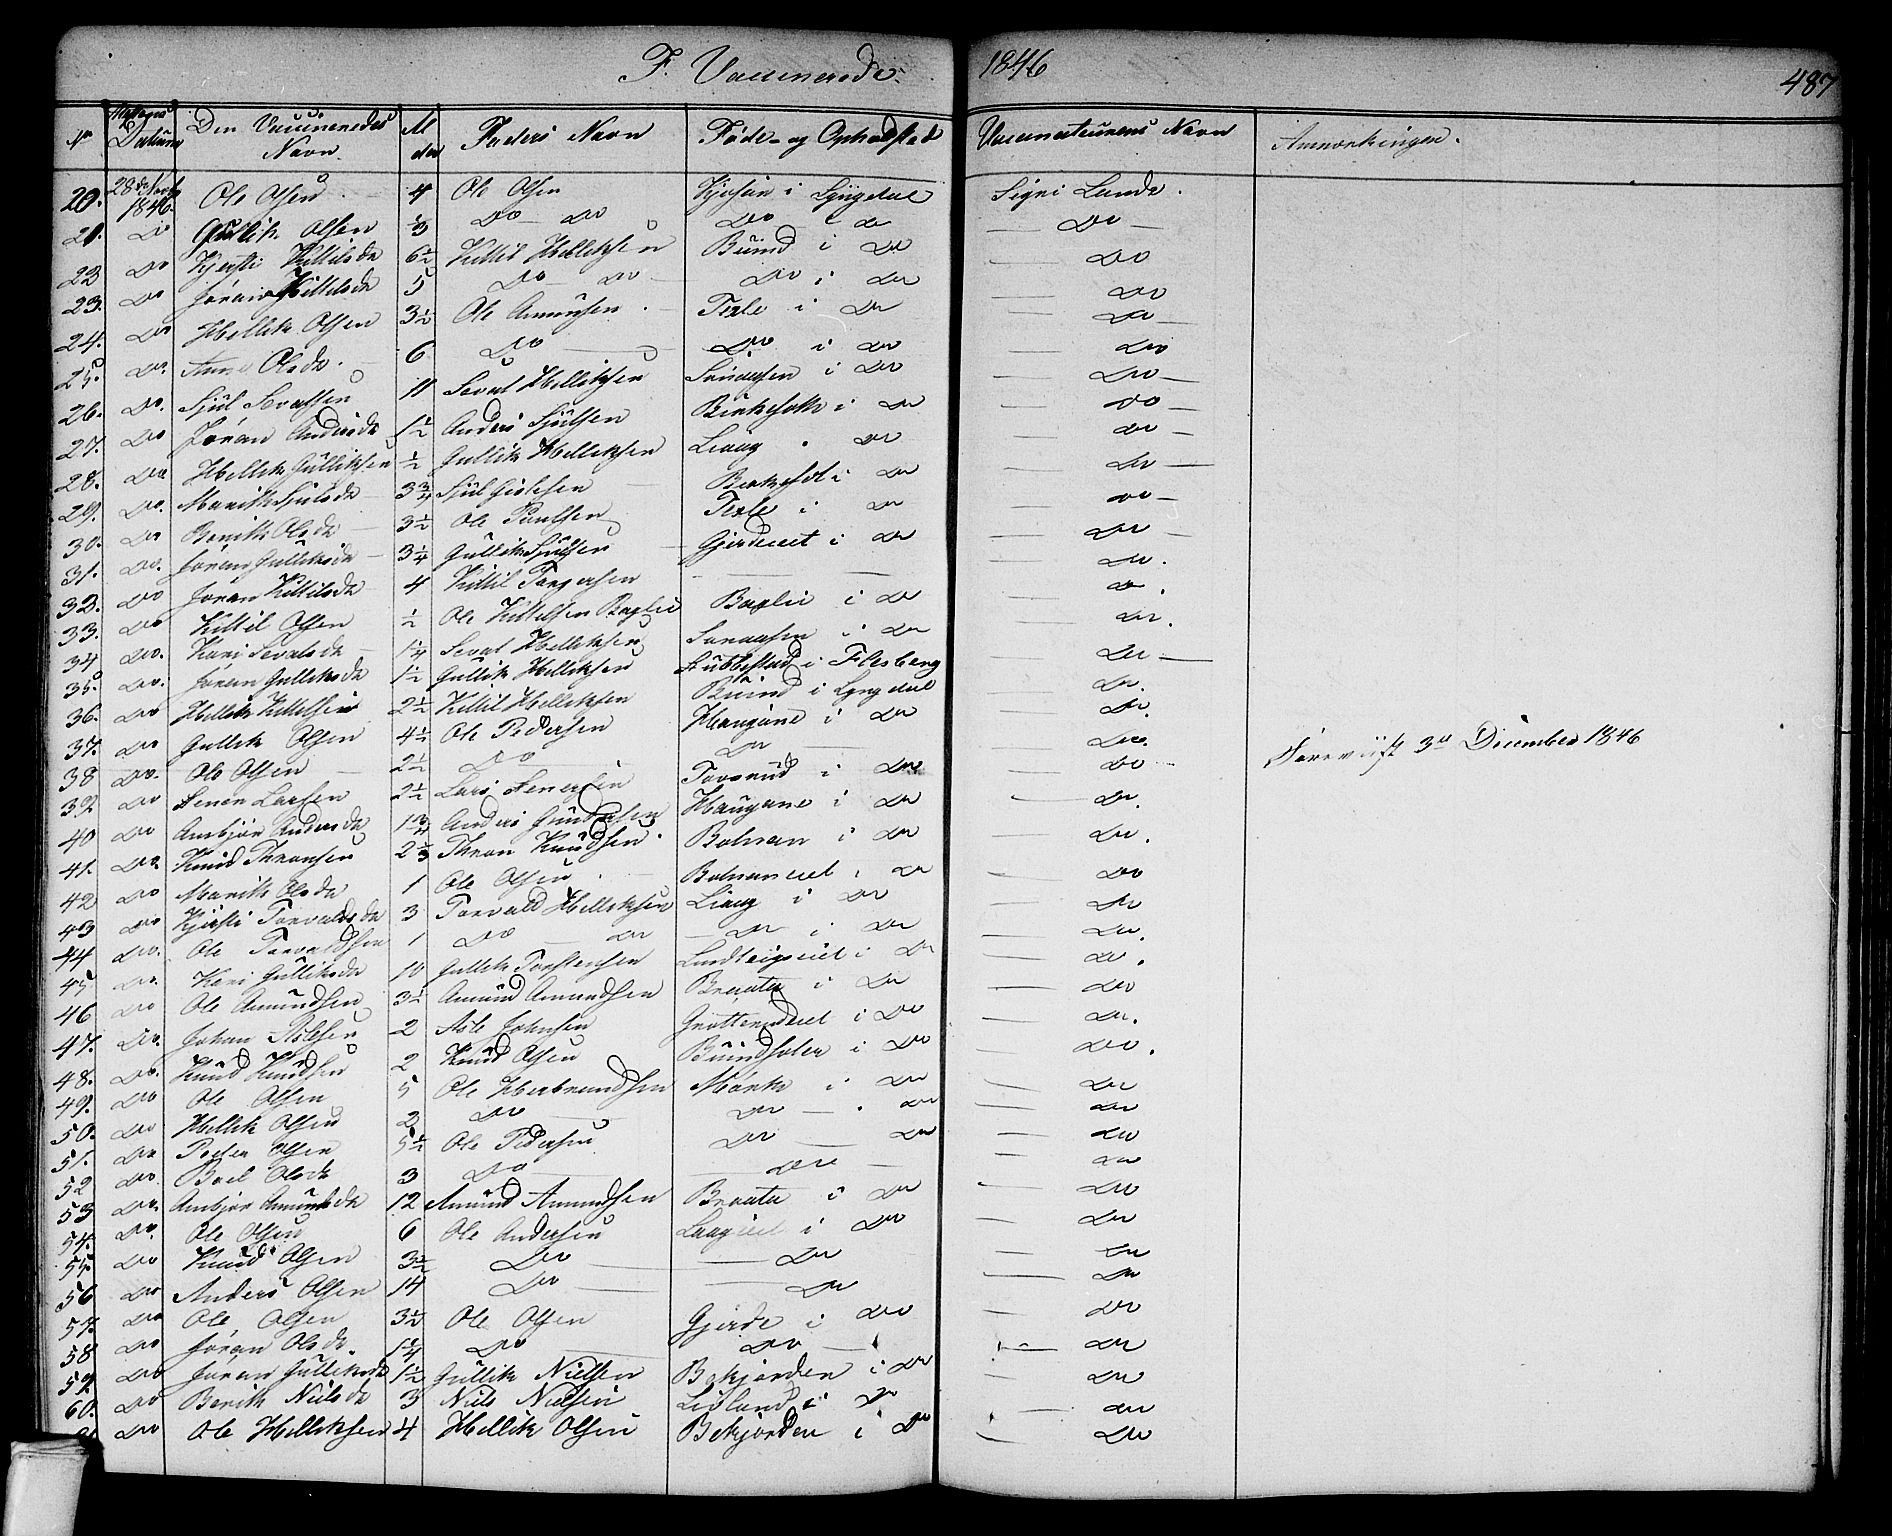 F. Vaccinerede. 1846 487
No Attestens Datum Den Vaccineredes Navn. Alder Faders Navn Føde- og Opholdsted Vaccinateurens Navn Anmærkninger.
20. 28de 1846. Ole Olsen 4 Ole Olsen i Lyngdal Sigri Lande.
21. Do Gullik Olsen 1/3 Do Do Do i Do Do
22 Do Kjersti Kittilsdr 6 1/2 Kittil Helliksen Buind i Do Do
23. Do Jøran Kittilsdr 5 Do Do Do i Do Do
24. Do Hellik Olsen 3 1/2 Ole Amunsen Texle i Do Do
25. Do. Anne Olsdr. 6 Do Do i Do Do
26. Do. Sjul Sevatsen 11 Sevat Helliksen i Do Do
27. Do Jøran Andersdr 1 1/2 Anders Sjulsen i Do Do
28. Do Hellik Gulliksen 1/2 Gullik Helliksen Liaag Do Do
29. Do. Marith Sjulsdr 3 3/4 Sjul i Do Do
30. Do Berith Olsdr 3 1/2 Ole Paulsen Texle i Do Do
31. Do. Jøran Gulliksdr 3 1/4 Gullik Sjulsen Gjerdeeiet i Do Do
32. Do Jøran Kittilsdr 4 Kittil Torgersen Do.
33. Do Kittil Olsen 1/2 Ole Kittelsen Baglie Baglie i Do Do
34 Do. Kari Sevatsdr 1 1/4 Sevat Helliksen i Do Do.
35. Do. Jøran Gulliksdr 1 1/2 Gullik Helliksen Stubbestad i Flesberg Do
36. Do Hellik Kittelsen 2 1/2 Kittil Helliksen Buind i Lyngdal Do.
37. Do Gullik Olsen 4 1/2 Ole Pedersen Haugane i Do Do
38 Do. Ole Olsen 2 1/2 Do Do Do 3die December 1846
39 Do Larsen 2 1/2 Lars i Do Do
40 Do Ambjør Andersdr 1 3/4 Anders Haugane i Do Do.
41. Do. Knud Thronsen 2 1/3 Thron Knudsen Bolvan i Do Do.
42 Do Marith Olsdr 1 Ole Olsen Bolvaneiet i Do Do
43 Do Kjersti Torvaldsdr 3 Torvald Helliksen Liaag i Do Do
44 Do. Ole Torvaldsen 1 Do Do Do i Do Do.
45 Do. Kari Gulliksdr 10 Gullik Torstensen i Do Do.
46 Do Ole Amundsen 3 1/2 Amund Amundsen Braata i Do Do
47. Do. Johan Aslesen 2 Asle Johnsen i Do Do.
48. Do. Knud Knudsen 2 Knud Olsen i Do Do.
49. Do Ole Olsen 5 Ole Herbrandsen Mørk i Do Do
50. Do Hellik Olsen 2 Do Do i Do Do
51. Do Peder Olsen 5 1/2 Ole Pedersen Do Do Do
52 Do. Boel Olsdr 3 Do Do Do
53 Do. Ambjør Amundsdr 12 Amund Amundsen Braata i Do Do
54. Do. Ole Olsen 6 Ole Andersen Laageiet i Do Do
55. Do Knud Olsen 3 1/2 Do Do Do
56 Do Anders Olsen 14 Do Do Do
57. Do Ole Olsen 3 1/2 Ole Olsen Gjerde i Do Do
58 Do Jøran Olsdr 1 1/4 Do Do Do
59 Do Jøran Gulliksdr 1 1/2 Gullik Nielsen Bekjorden i Do Do
60. Do Berith Nielsdr 3 Niels Nielsen Lisland i Do Do
Do Ole Helliksen 4 Hellik Olsen Bekjorden i Do Do